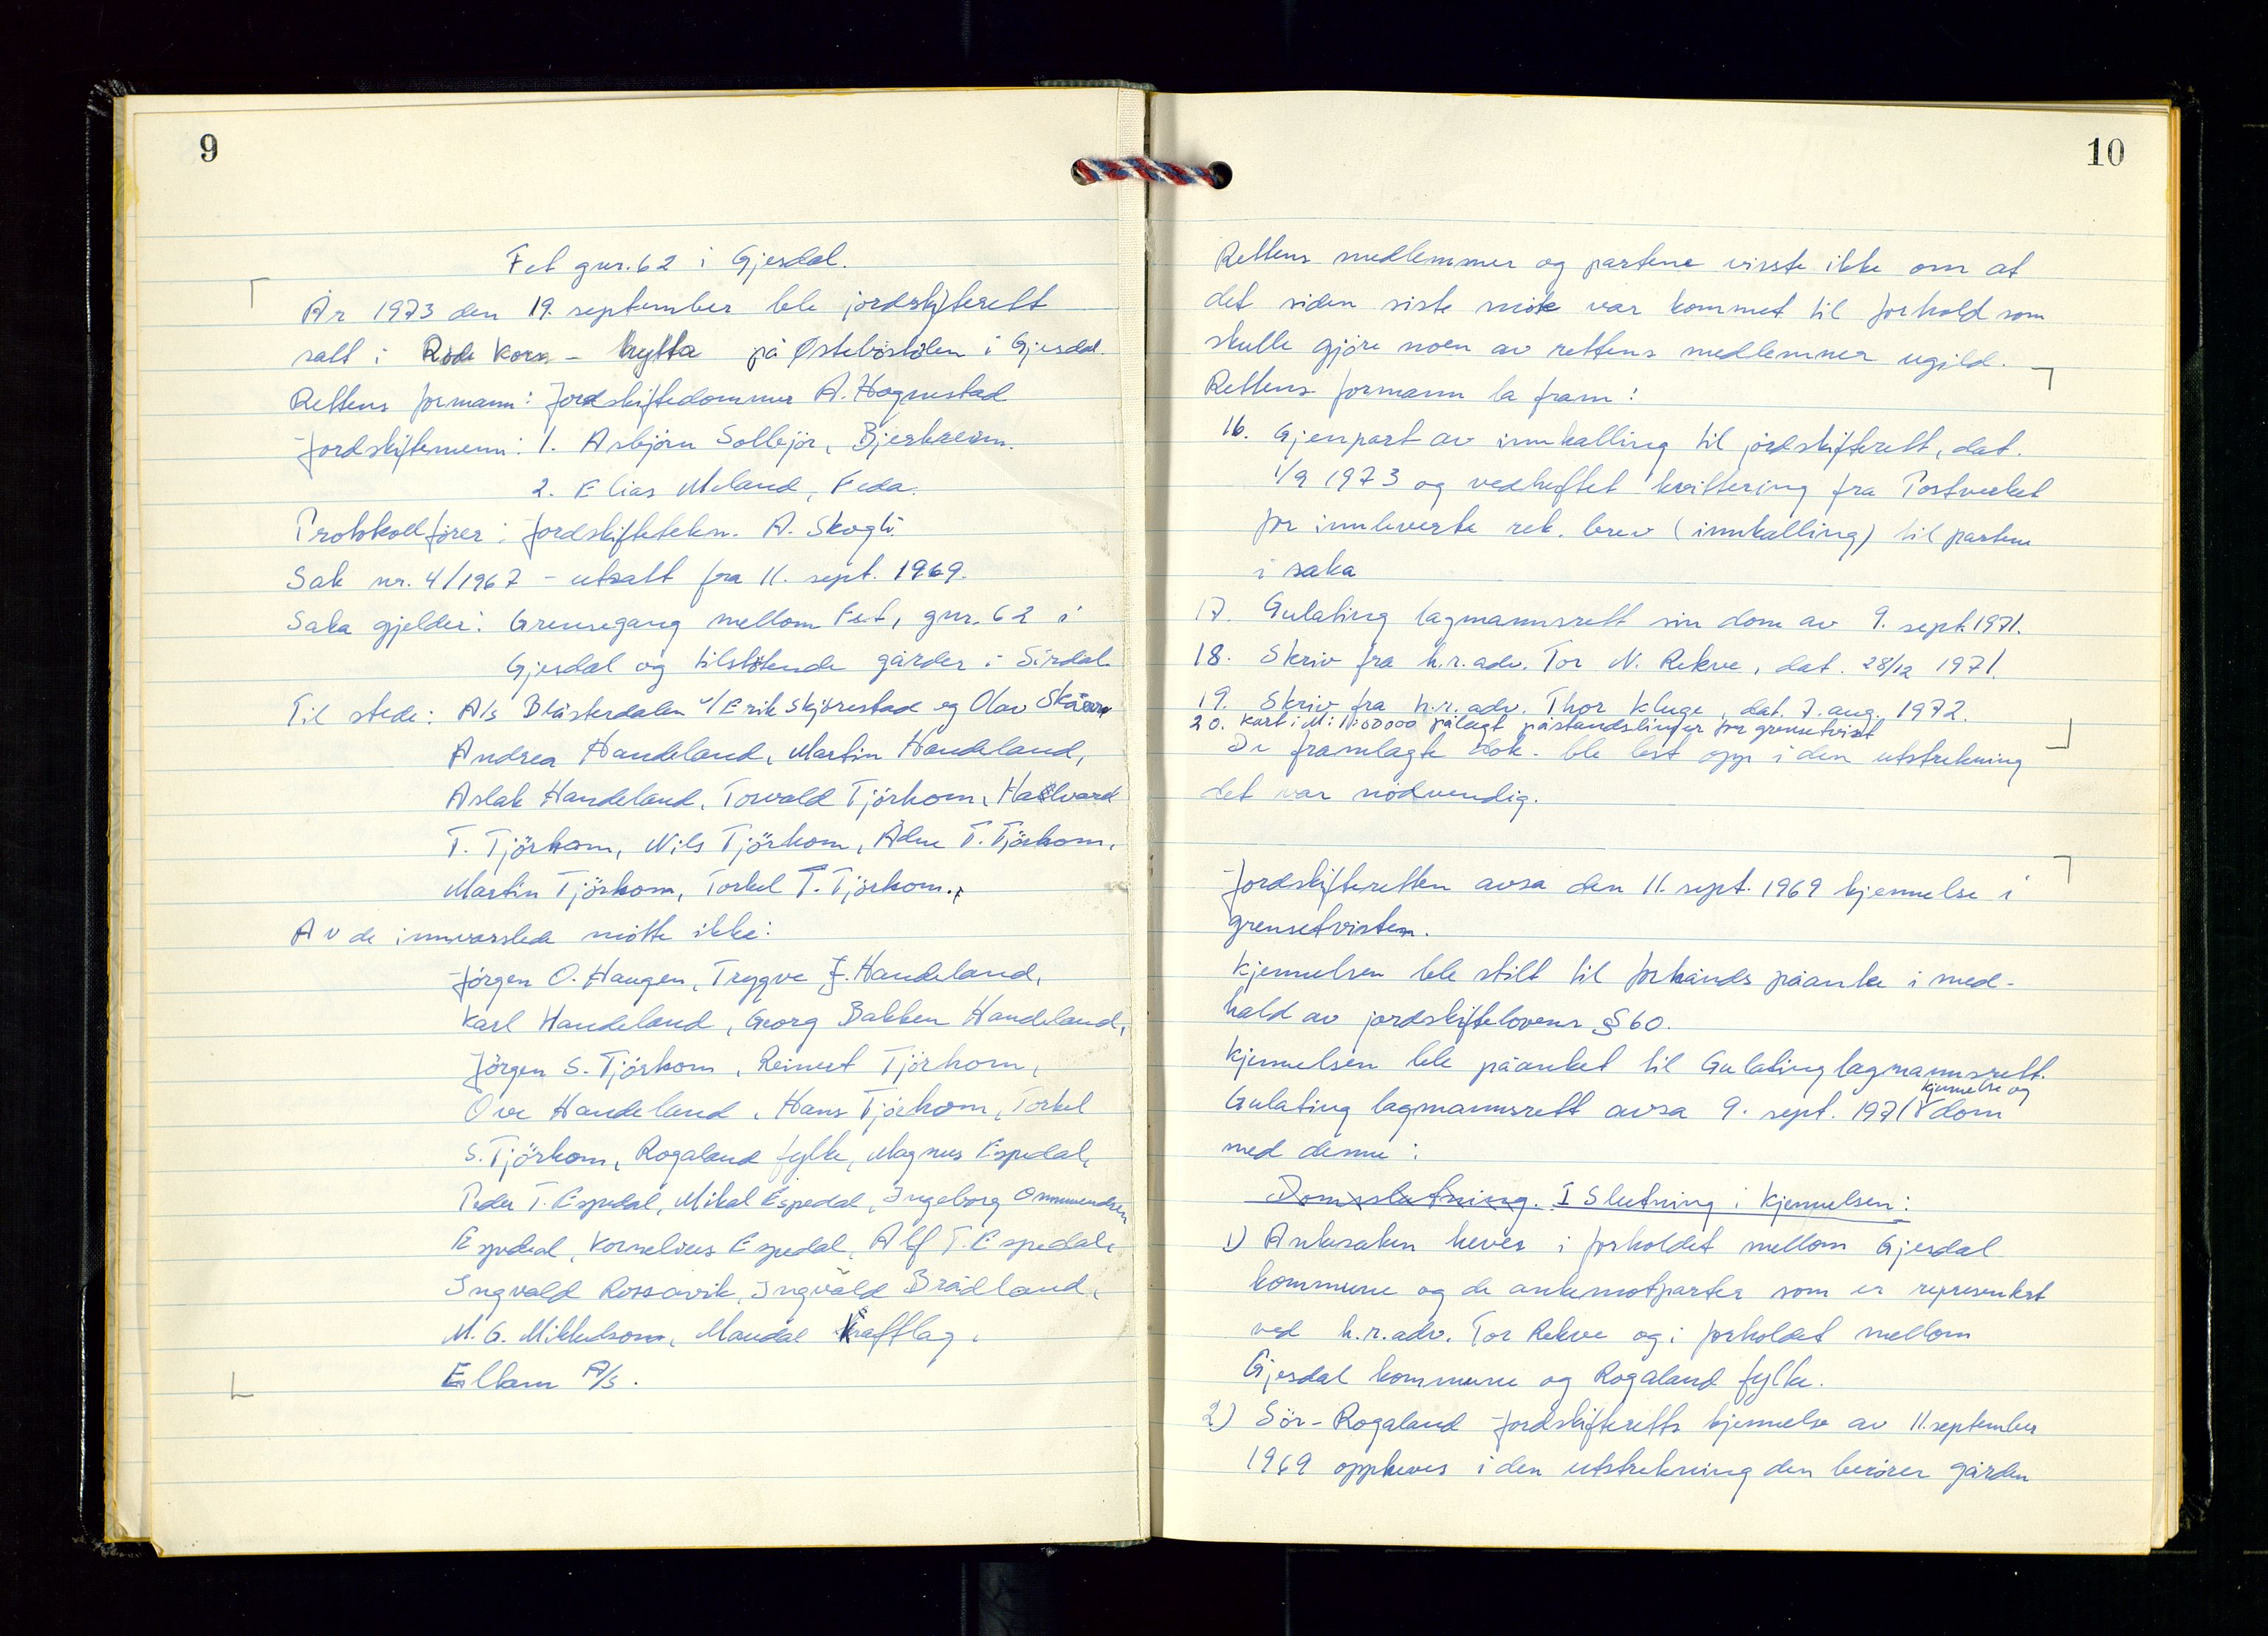 9
Fet gnr. 62 i Gjesdal.
År 1973 den 19. september ble jordskifterett
satt i Røde Kors - hytta på Østebøstølen i Gjesdal.
Rettens formann: Jordskiftedommer A. Hognestad
Jordskiftemenn: 1. Asbjørn Solbjør, Bjerkreim.
2. Elias Meland, Feda.
Protokollfører: Jordskiftetekn. A. Skogli.
Sak nr. 4/1967 - utsatt fra 11. sept. 1969.
Saka gjelder: Grensegang mellom Fet, gnr. 62 i
Gjesdal og tilstøtende gårder i Sirdal
Til stede: A/s Blåsterdalen v/Erik Skjørestad og Olav
Andrea Handeland, Martin Handeland,
Aslak Handeland, Torvald Tjörhom, Hallvard
T. Tjörhom, Nils Tjörhom, Ådne T. Tjörhom,
Martin Tjörhom, Torkel T. Tjörhom.
Av de innvarslede møtte ikke:
Jörgen O. Haugen, Trygve J. Handeland,
Karl Handeland, Georg Bakken Handeland,
Jörgen S. Tjörhom, Reinert Tjörhom,
Ove Handeland, Hans Tjörhom, Torkel
S. Tjörhom, Rogaland fylke, Magnus Espedal,
Peder T. Espedal, Mikal Espedal, Ingeborg Ommundsen
Espedal, Kornelius Espedal, Alf T. Espedal,
Ingvald Rossavik, Ingvald Brådland,
M. G. Mikkelson, Mandal kraftlag,
Elkem A/s.
10
Rettens medlemmer og partene visste ikke om at
det siden siste møte var kommet til forhold som
skulle gjøre noen av rettens medlemmer ugild.
Rettens formann la fram:
16. Gjenpart av innkalling til jordskifterett, dat.
1/9 1973 og vedheftet kvittering fra Postverket
for innleverte rek. brev (innkalling) til partene
i saka
17. Gulating lagmannsrett sin dom av 9. sept. 1971.
18. Skriv fra h.r.adv. Tor N. Rekve, dat. 28/12 1971.
19. Skriv fra h.r.adv. Thor Kluge, dat. 7. aug. 1972.
20. Kart i M: 1: pålagt påstandslinjer for grensetvist
De framlagte dok. ble lest opp i den utstrekning
det var nødvendig.
Jordskifteretten avsa den 11. sept. 1969 kjennelse i
grensetvisten.
Kjennelsen ble stilt til forhånds påanke i med-
hald av jordskiftelovens § 60.
Kjennelsen ble påanket til Gulating lagmannsrett.
Gulating lagmannsrett avsa 9. sept. 1971 kjennelse og dom
med denne:
Domsslutning. I Slutning i kjennelsen:
1) Ankesaken heves i forholdet mellom Gjesdal
kommune og de ankemotparter som er representert
ved h.r.adv. Tor Rekve og i forholdet mellom
Gjesdal kommune og Rogaland fylke.
2) Sör-Rogaland Jordskifteretts kjennelse av 11. september
1969 oppheves i den utstrekning den berører gården